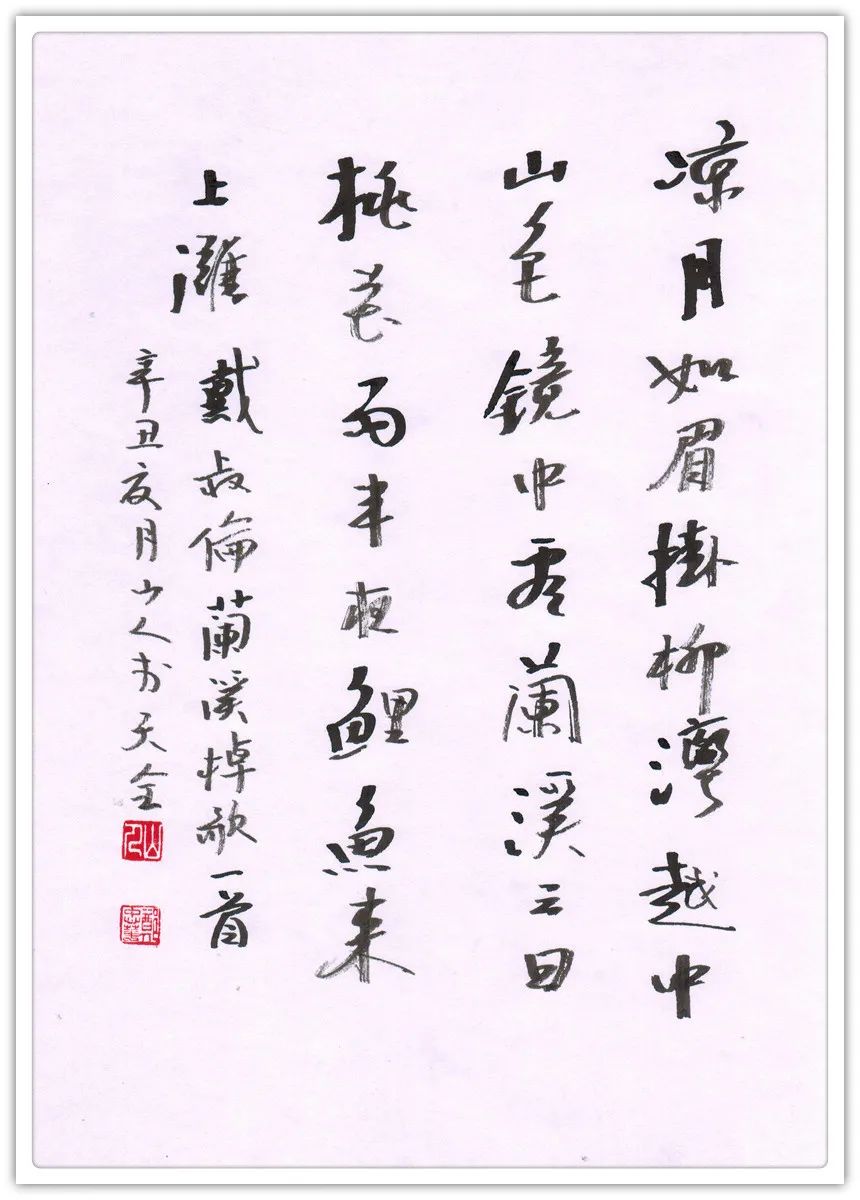 凉月如眉掛柳灣越中
山色鏡中看蘭溪三日
桃花雨半夜鯉魚来
上灘 戴叔倫蘭溪棹歌一首
辛丑亥月山人於天全
山人